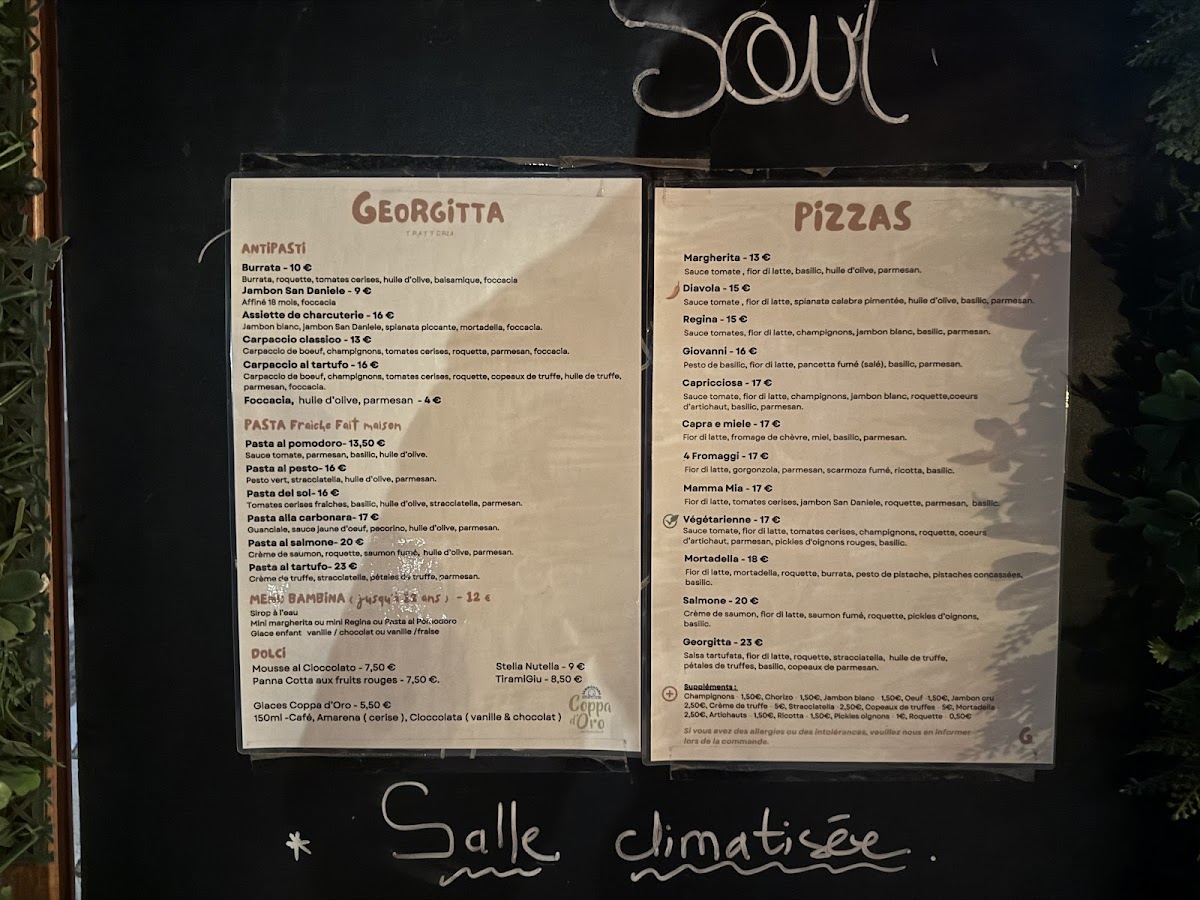 Soul
GEORGiTTA
TRATTERIA
ANTiPASTi
Burrata - 10 €
Burrata, roquette, tomates cerises, huile d'olive, balsamique, foccacia
Jambon San Daniele - 9 €
Affiné 18 mois, foccacia
Assiette de charcuterie - 16 €
Jambon blanc, jambon San Daniele, spianata piccante, mortadella, foccacia.
Carpaccio classico - 13 €
Carpaccio de boeuf, champignons, tomates cerises, roquette, parmesan, foccacia.
Carpaccio al tartufo - 16 €
Carpaccio de boeuf, champignons, tomates cerises, roquette, copeaux de truffe, huile de truffe,
parmesan, foccacia.
Foccacia, huile d'olive, parmesan - 4 €
PASTA Fraiche Fait maison
Pasta al pomodoro- 13,50 €
Sauce tomate, parmesan, basilic, huile d'olive.
Pasta al pesto- 16 €
Pesto vert, stracciatella, huile d'olive, parmesan.
Pasta del sol- 16 €
Tomates cerises fraiches, basilic, huile d'olive, stracciatella, parmesan.
Pasta alla carbonara- 17 €
Guanciale, sauce jaune d'oeuf, pecorino, huile d'olive, parmesan.
Pasta al salmone- 20 €
Crème de saumon, roquette, saumon fumé, huile d'olive, parmesan.
Pasta al tartufo- 23 €
Crème de truffe, stracciatella, pétales de truffe, parmesan.
MENU BAMBINA ( jusqu'à 13 ans ) - 12 €
Sirop à l'eau
Mini margherita ou mini Regina ou Pasta al Pomodoro
Glace enfant vanille / chocolat ou vanille /fraise
DOLCi
Mousse al Cioccolato - 7,50 €
Panna Cotta aux fruits rouges - 7,50 €.
Stella Nutella - 9 €
TiramiGiu - 8,50 €
Glaces Coppa d'Oro - 5,50 €
150ml -Café, Amarena ( cerise ), Cioccolata ( vanille & chocolat )
Coppa
d'Oro
PiZZAS
Margherita - 13 €
Sauce tomate , fior di latte, basilic, huile d'olive, parmesan.
Diavola - 15 €
Sauce tomate , fior di latte, spianata calabra pimentée, huile d'olive, basilic, parmesan.
Regina - 15 €
Sauce tomates, fior di latte, champignons, jambon blanc, basilic, parmesan.
Giovanni - 16 €
Pesto de basilic, fior di latte, pancetta fumé (salé), basilic, parmesan.
Capricciosa - 17 €
Sauce tomate, fior di latte, champignons, jambon blanc, roquette,coeurs
d'artichaut, basilic, parmesan.
Capra e miele - 17 €
Fior di latte, fromage de chèvre, miel, basilic, parmesan.
4 Fromaggi - 17 €
Fior di latte, gorgonzola, parmesan, scarmoza fumé, ricotta, basilic.
Mamma Mia - 17 €
Fior di latte, tomates cerises, jambon San Daniele, roquette, parmesan, basilic.
Végétarienne - 17 €
Sauce tomate, fior di latte, tomates cerises, champignons, roquette, coeurs
d'artichaut, parmesan, pickles d'oignons rouges, basilic.
Mortadella - 18 €
Fior di latte, mortadella, roquette, burrata, pesto de pistache, pistaches concassées,
basilic.
Salmone - 20 €
Crème de saumon, fior di latte, saumon fumé, roquette, pickles d'oignons,
basilic.
Georgitta - 23 €
Salsa tartufata, fior di latte, roquette, stracciatella, huile de truffe,
pétales de truffes, basilic, copeaux de parmesan.
Suppléments :
Champignons - 1,50€, Chorizo - 1,50€, Jambon blanc - 1,50€, Oeuf -1,50€, Jambon cru
2,50€, Crème de truffe - 5€, Stracciatella - 2,50€, Copeaux de truffes - 5€, Mortadella -
2,50€, Artichauts - 1,50€, Ricotta - 1,50€, Pickles oignons - 1€, Roquette - 0,50€
Si vous avez des allergies ou des intolérances, veuillez nous en informer
lors de la commande.
G
* Salle climatisée.